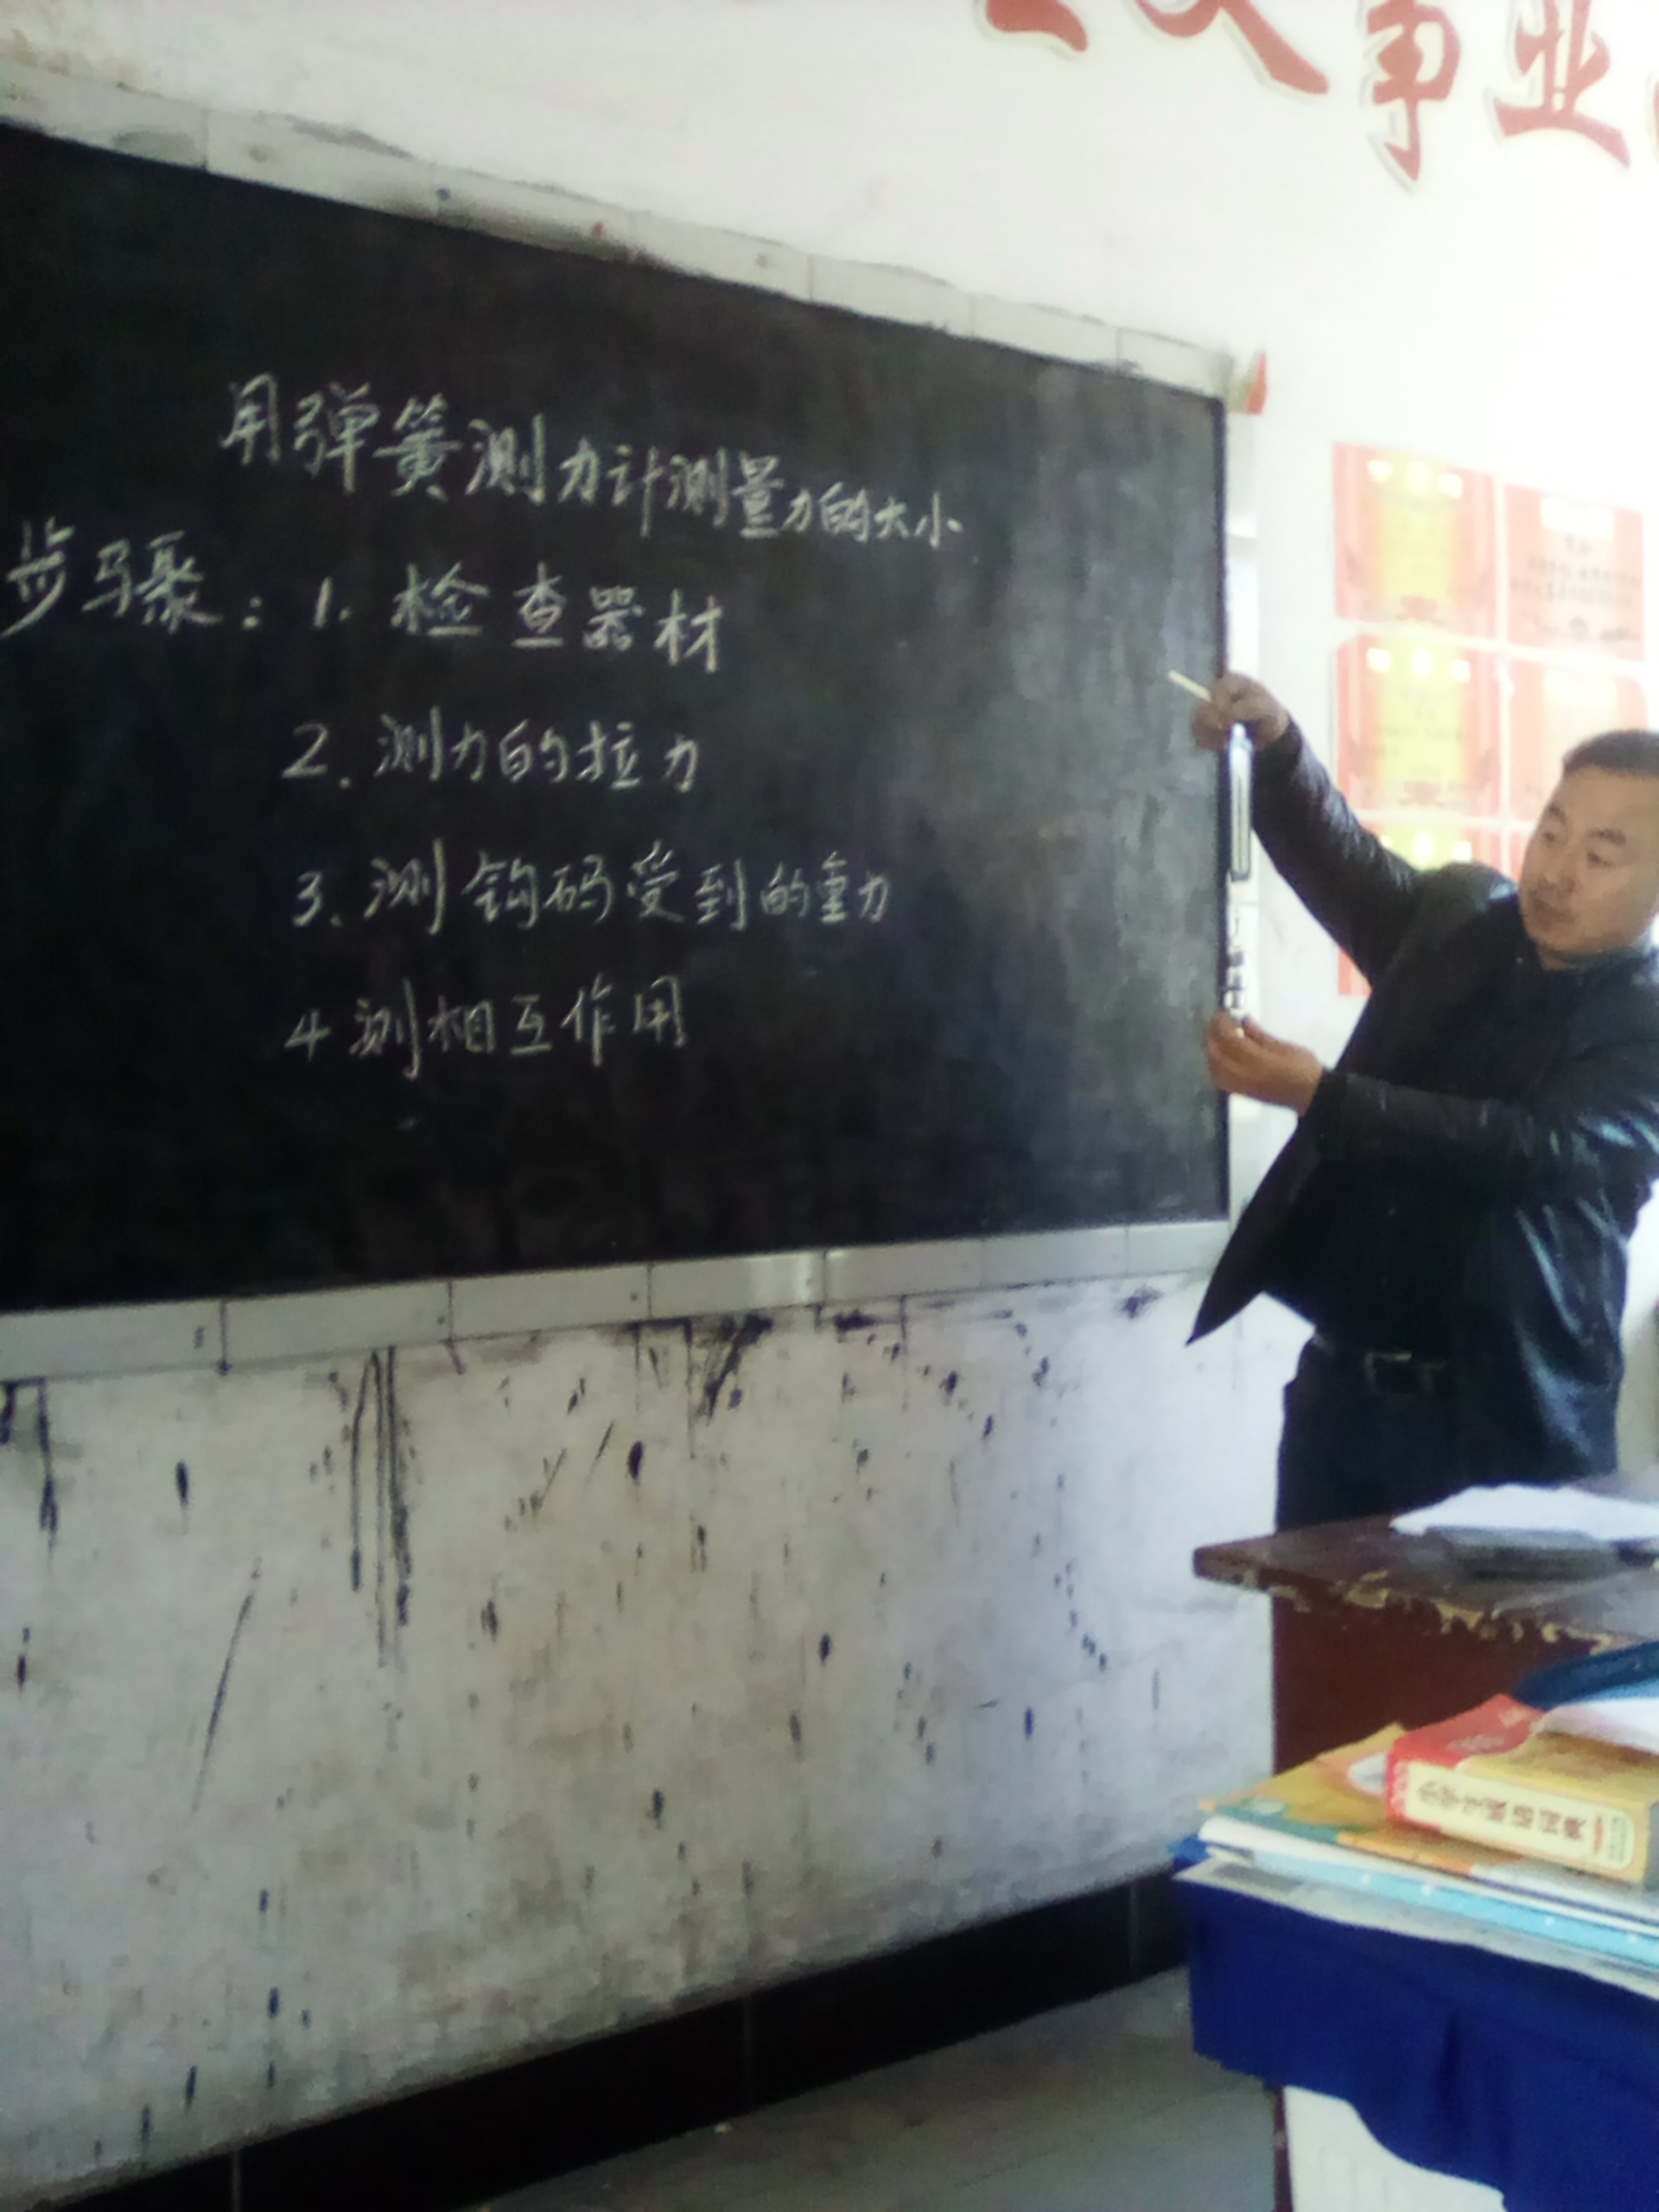 事业
用弹簧测力计测量力的大小
步骤：1. 检查器材
2. 测力的拉力
3. 测钩码受到的重力
4 测相互作用
小学生成语词典